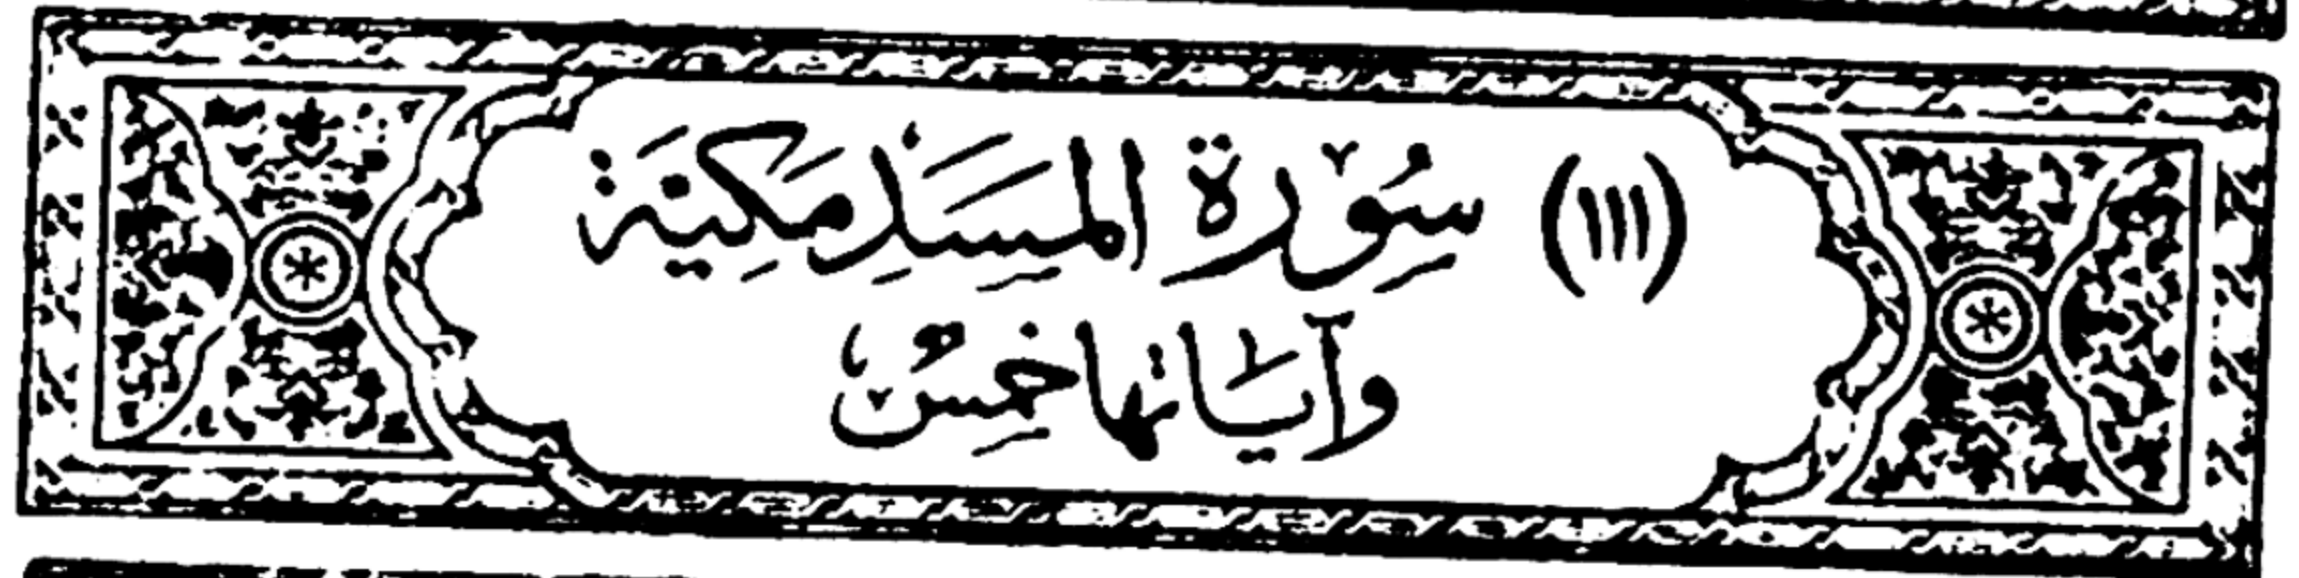 (١١١) سُوۡرَةُ المَسَدِ مَكِيَّة
وآيَاتُها خمسٌ